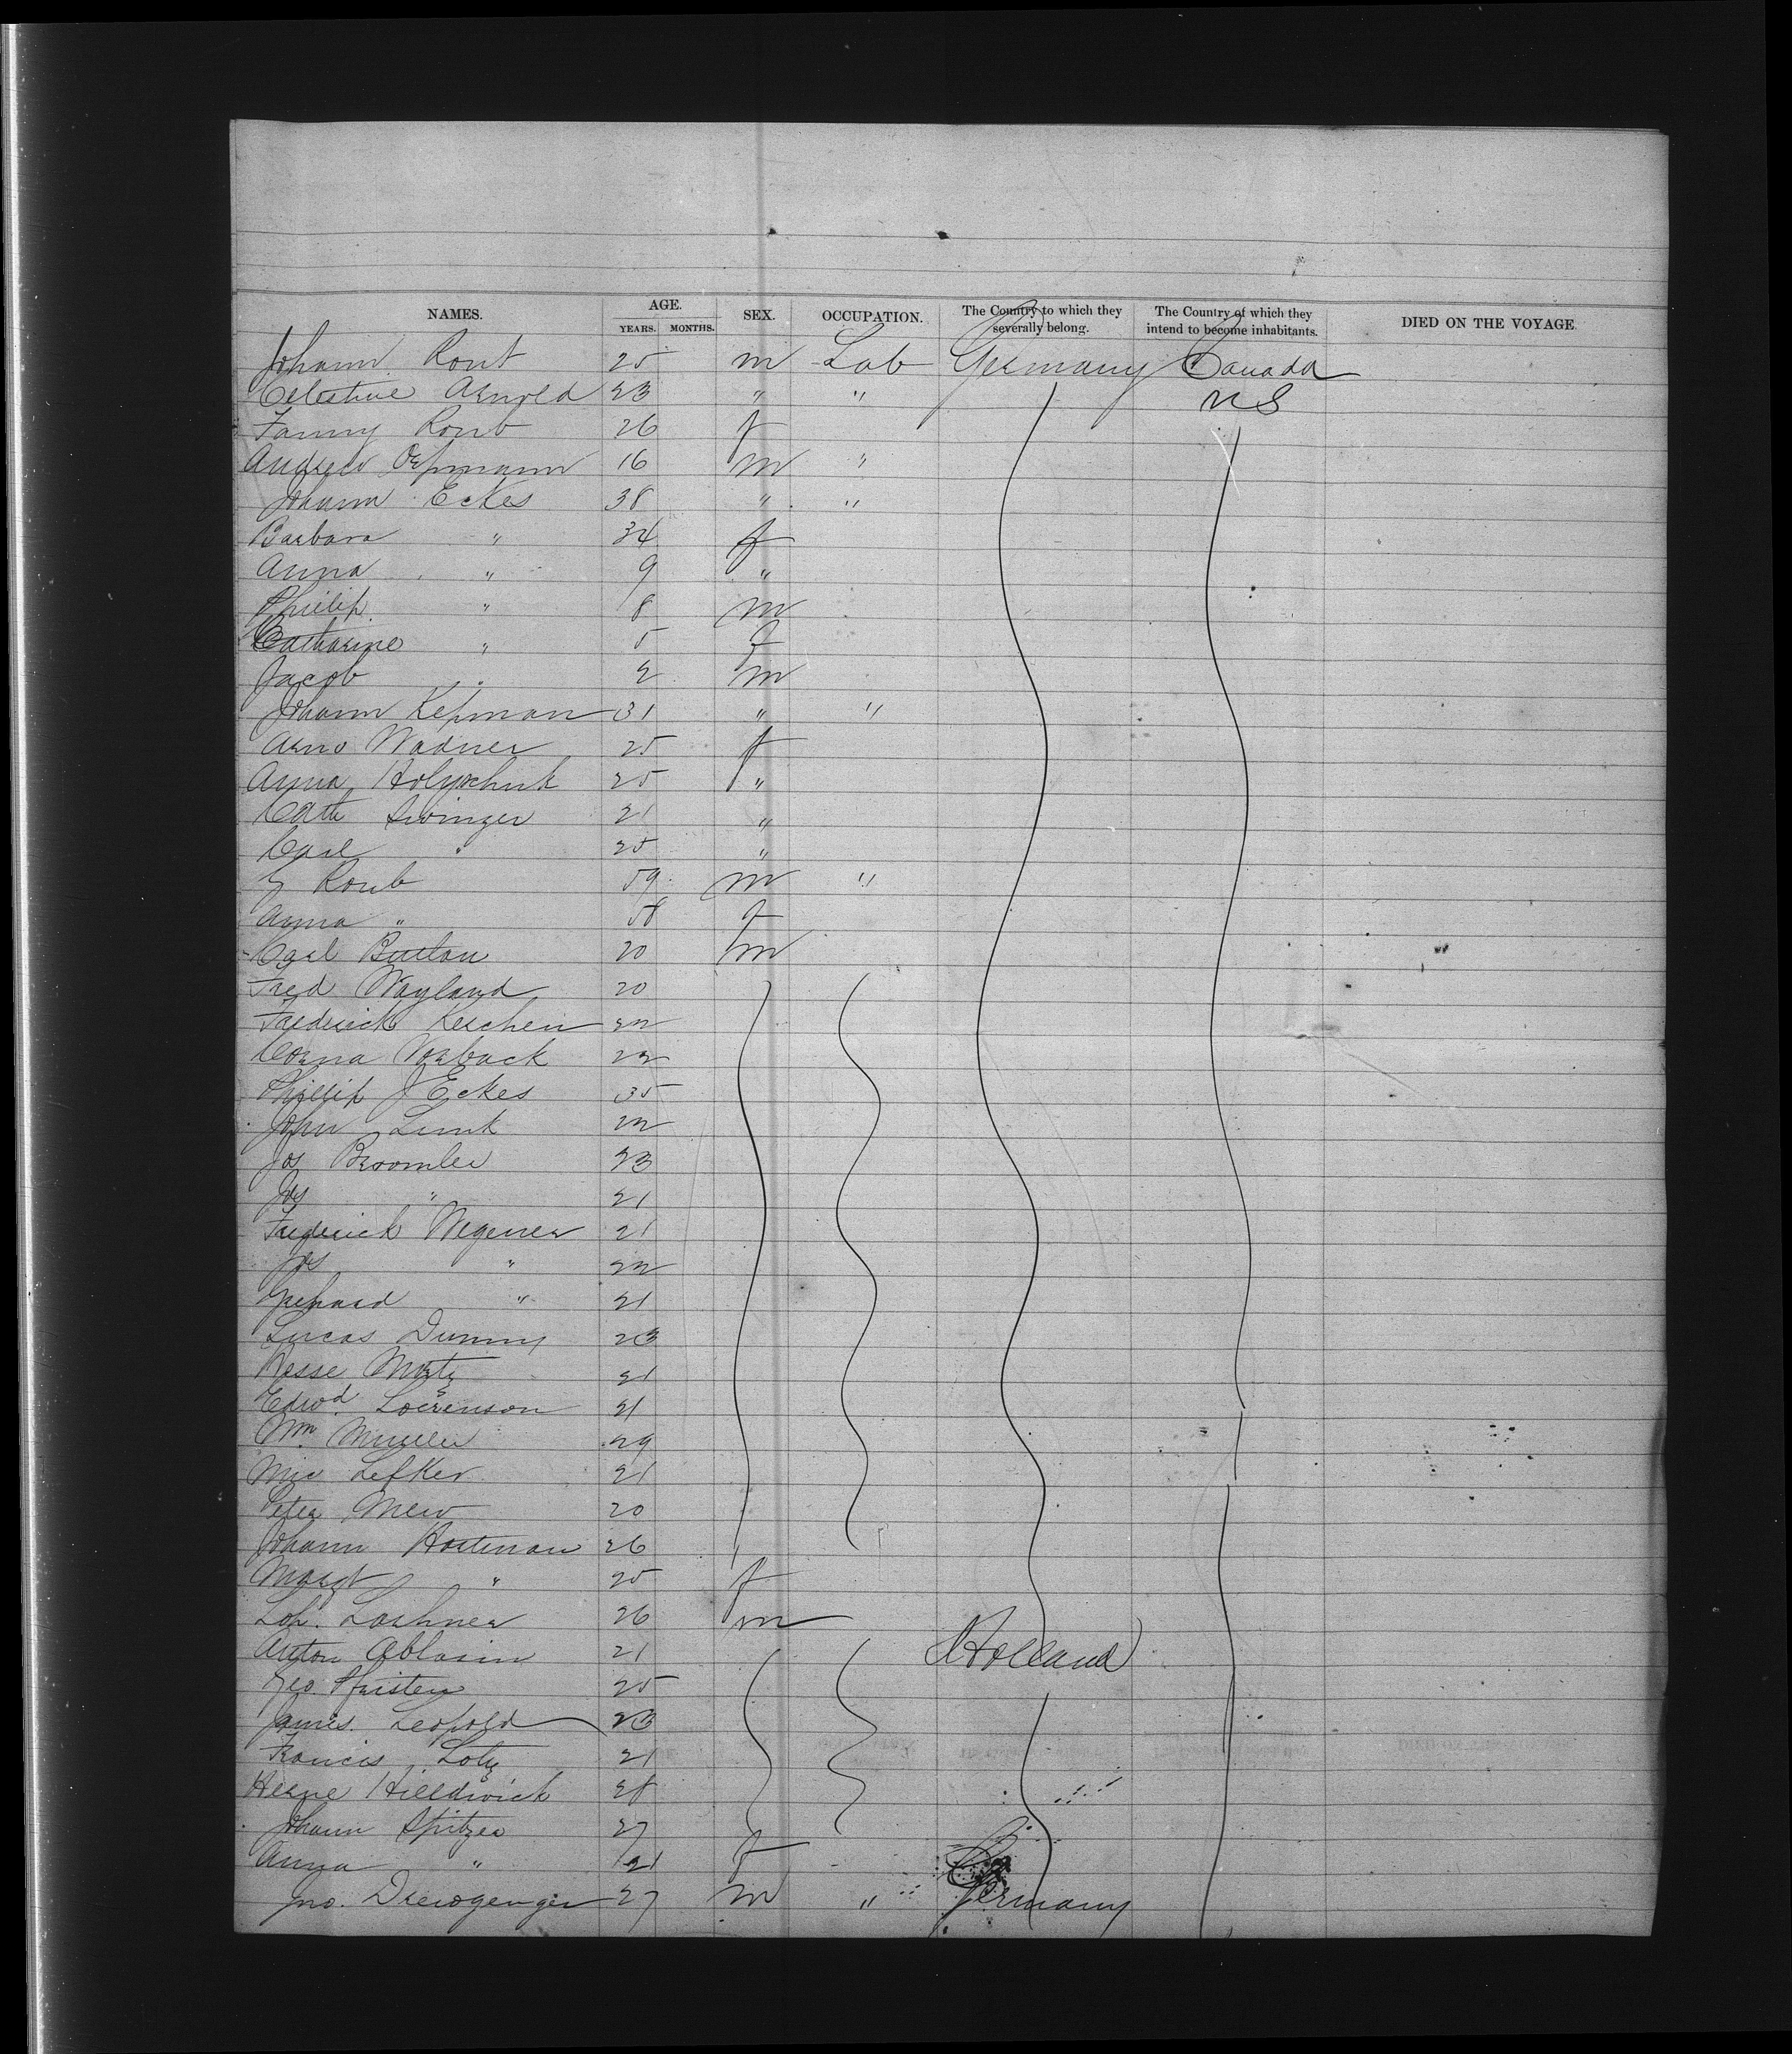 NAMES. AGE. YEARS. MONTHS. SEX. OCCUPATION. The Country to which they severally belong. The Country of which they intend to become inhabitants. DIED ON THE VOYAGE
JohannRont 25 m Lab Germany Canada
Celestine Arnold 23 " " US
Fanny Ronb 26 f
Andrew 16 m "
Johann Eckes 38 " "
Barbara " 34 f
Anna " 9 "
Phillip " 8 m
Catharine " 5 f
Jacob " 2 m
Johann Kepman 31 " "
Arno Wadner 25 f
Anna 25 "
Cath Swinger 21 "
Carl " 25 "
G Ronb 59 m "
Anna " 58 f
Carl Button 20 m
Fred Wayland 20
Frederick Kerchen 22
Corna Vorback 22
Phillip J Eckes 35
John Lunk 22
Jos Broomlee 23
Jos " 21
Frederick Wegener 21
Jos " 22
Gerhard " 21
Lucas Dummy 23
Hesse Mortz 21
Edwd Loerenson 21
Wm Mueller 29
Mic Lefker 21
Peter Mew 20
Johann Hortman 26
Margt " 25 f
Loh. Lochner 26 m
Anton Ablasin 21 Holland
Geo. Pfeisten 25
James Leopold 23
Francis Lotz 21
Herne Hilldwick 28
Johann Spitzer 27
Anna " 21 f
Jno. Drewogenger 27 m " Germany